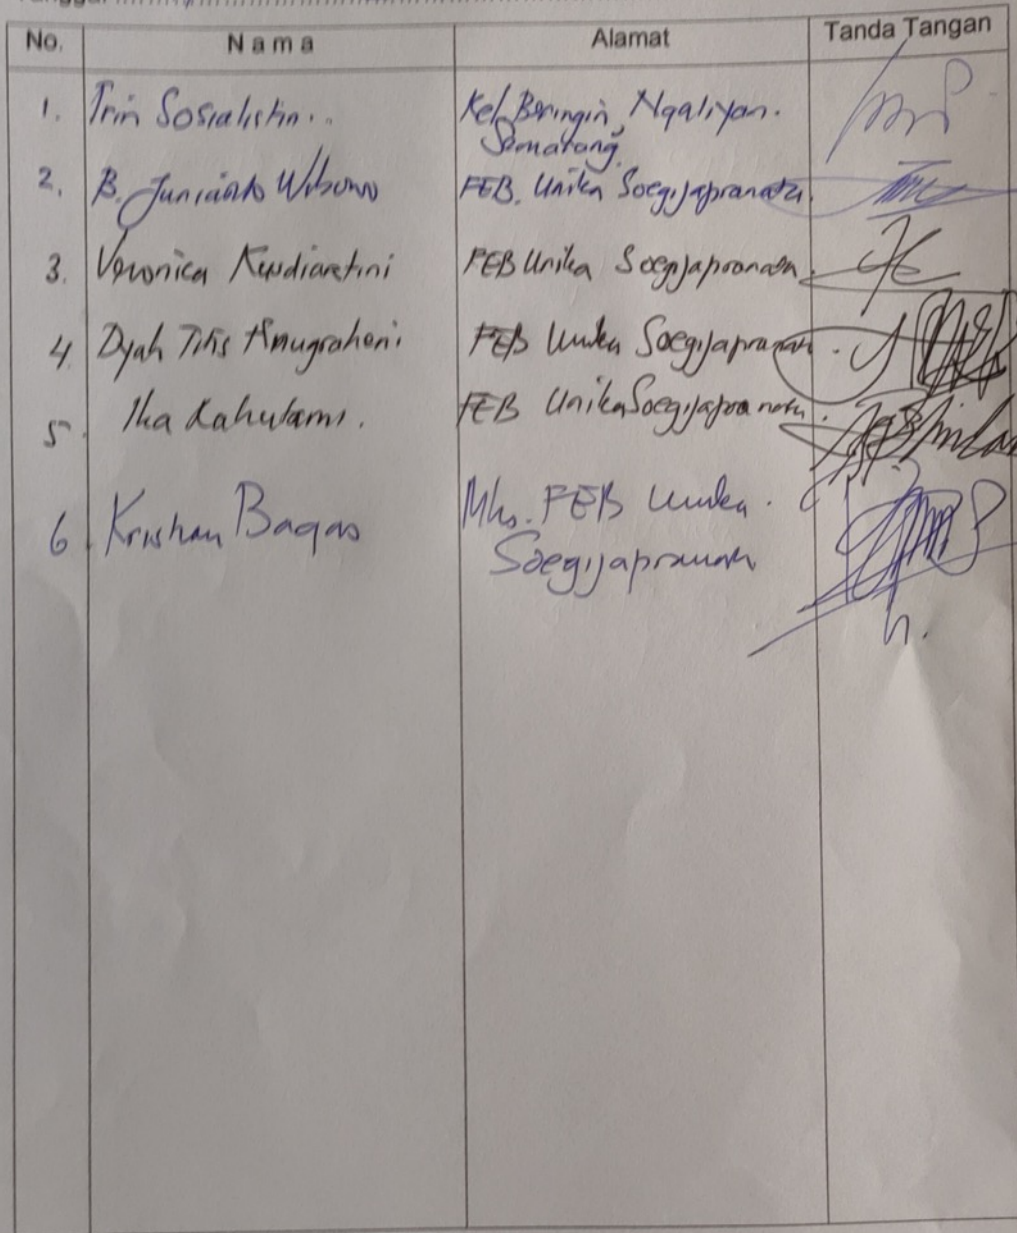 No. Nama Alamat Tanda Tangan
1. Trin Sosialistin.. Kel. Beringin, Ngaliyan.
Semarang.
2. B. Juniarto Wibowo FEB. Unika Soegijapranata.
3. Veronica Kusdiartini FEB Unika Soegijapranata
4. Dyah Titis Anugraheni FEB Unika Soegijapranata.
5. Ika Rahutami. FEB Unika Soegijapranata.
6. Bagas Mhs. FEB Unika.
Soegijapranata